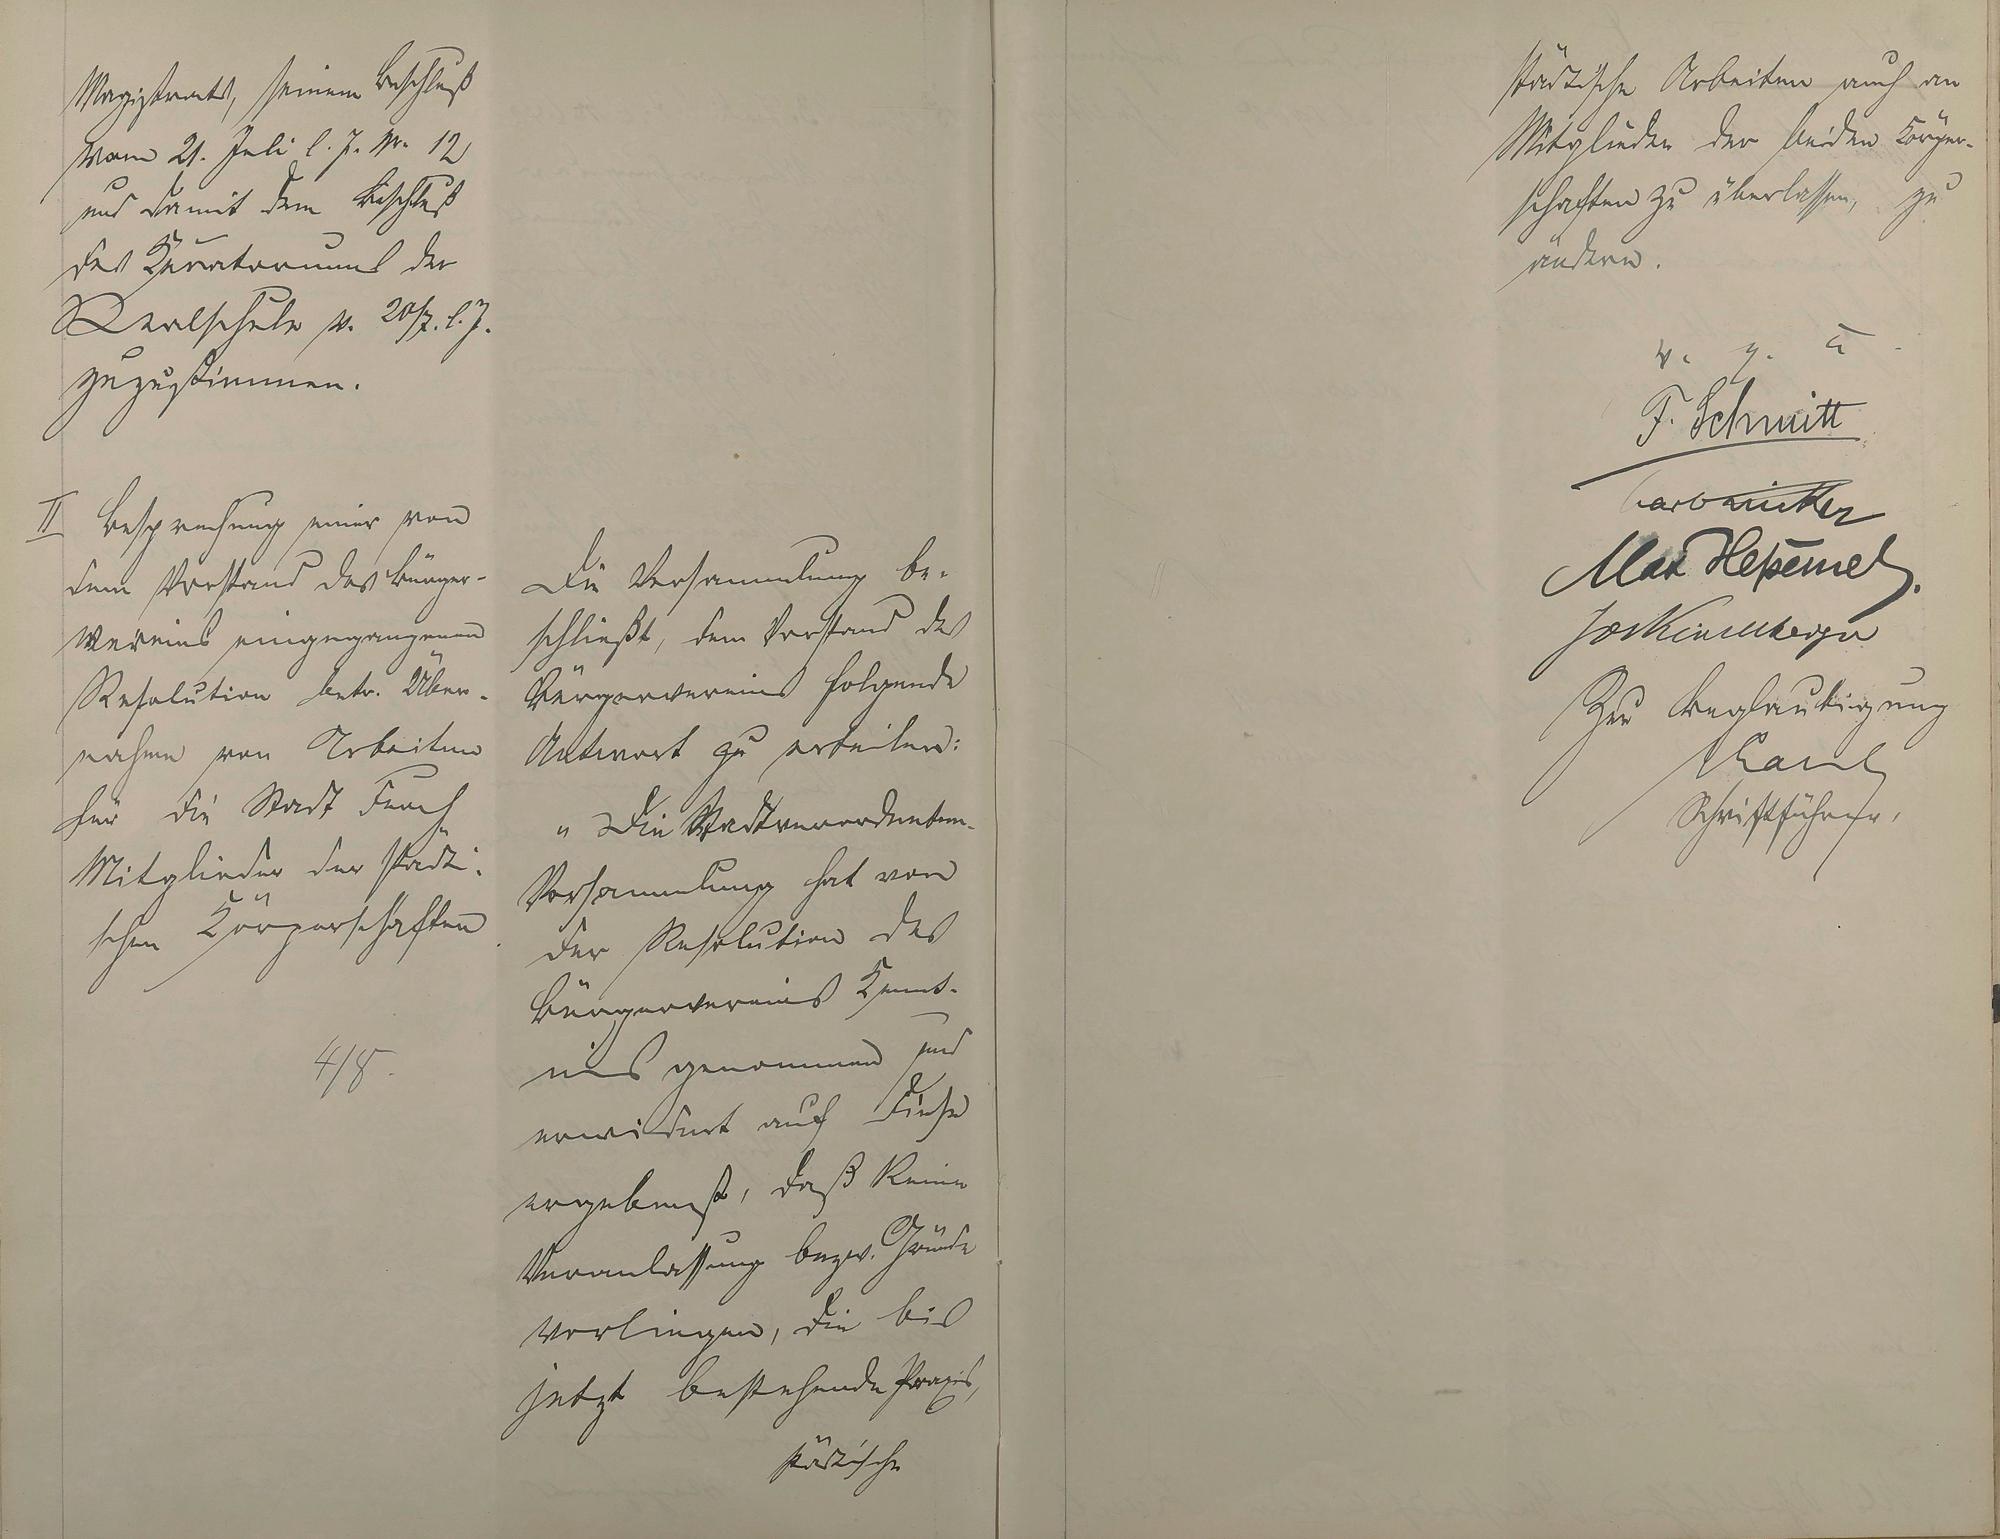 Magistrats, seinem Beschluß
vom 21. Juli l. J. Nr. 12
und damit dem Beschluß
des Kuratoriums der
Realschule v. 20/7. l. J.
zuzustimmen.
II Besprechung einer von
dem Vorstand des Bürger-
vereins eingegangenen
Resolution betr. Über-
nahme von Arbeiten
für die Stadt durch
Mitglieder der städti-
schen Körperschaften
4/8.
Die Versammlung be-
schließt, dem Vorstand des
Bürgervereins folgende
Antwort zu erteilen:
„Die Stadtverordneten-
Versammlung hat von
der Resolution des
Bürgervereins Kennt-
nis genommen und
erwidert auf diese
ergebenst, daß keine
Veranlassung bezw. Gründe
vorliegen, die bis
jetzt bestehende Praxis,
städtische
städtische Arbeiten auch an
Mitglieder der beiden Körper-
schaften zu überlassen, zu
ändern.
v. g. u.
F. Schmitt
Max
Zur Beglaubigung
Schriftführer.